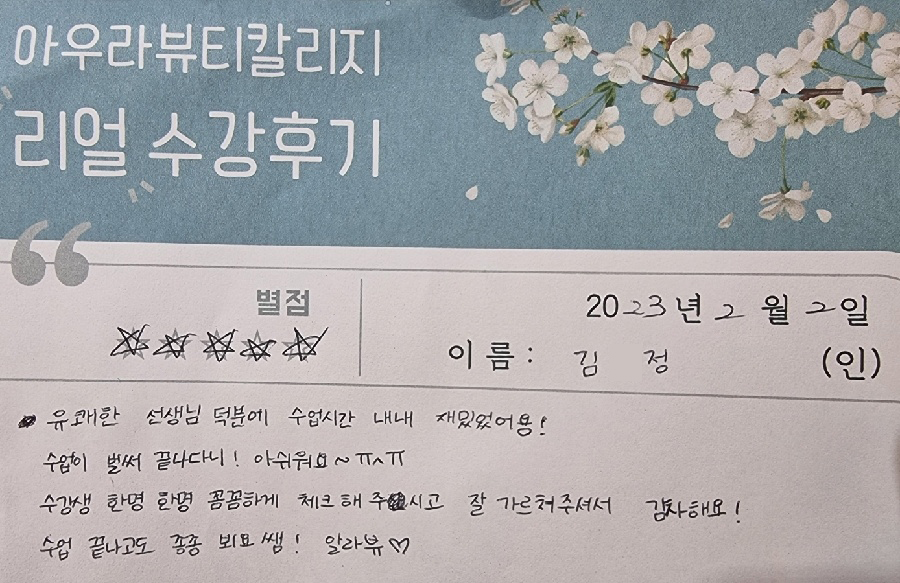 아우라뷰티칼리지
리얼 수강후기
별점
2023년 2월 2일
이름: 김 정 (인)
유쾌한 선생님 덕분에 수업시간 내내 재밌었어용!
수업이 벌써 끝나다니! 아쉬워요~ㅠㅅㅠ
수강생 한명 한명 꼼꼼하게 체크해 주시고 잘 가르쳐주셔서 감사해요!
수업 끝나고도 종종 뵈요 쌤! 알라뷰♡